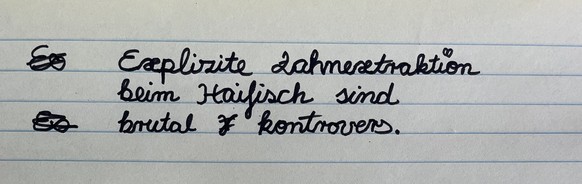 Explizite Zahnextraktiön
beim Haifisch sind
brutal & kontrovers.